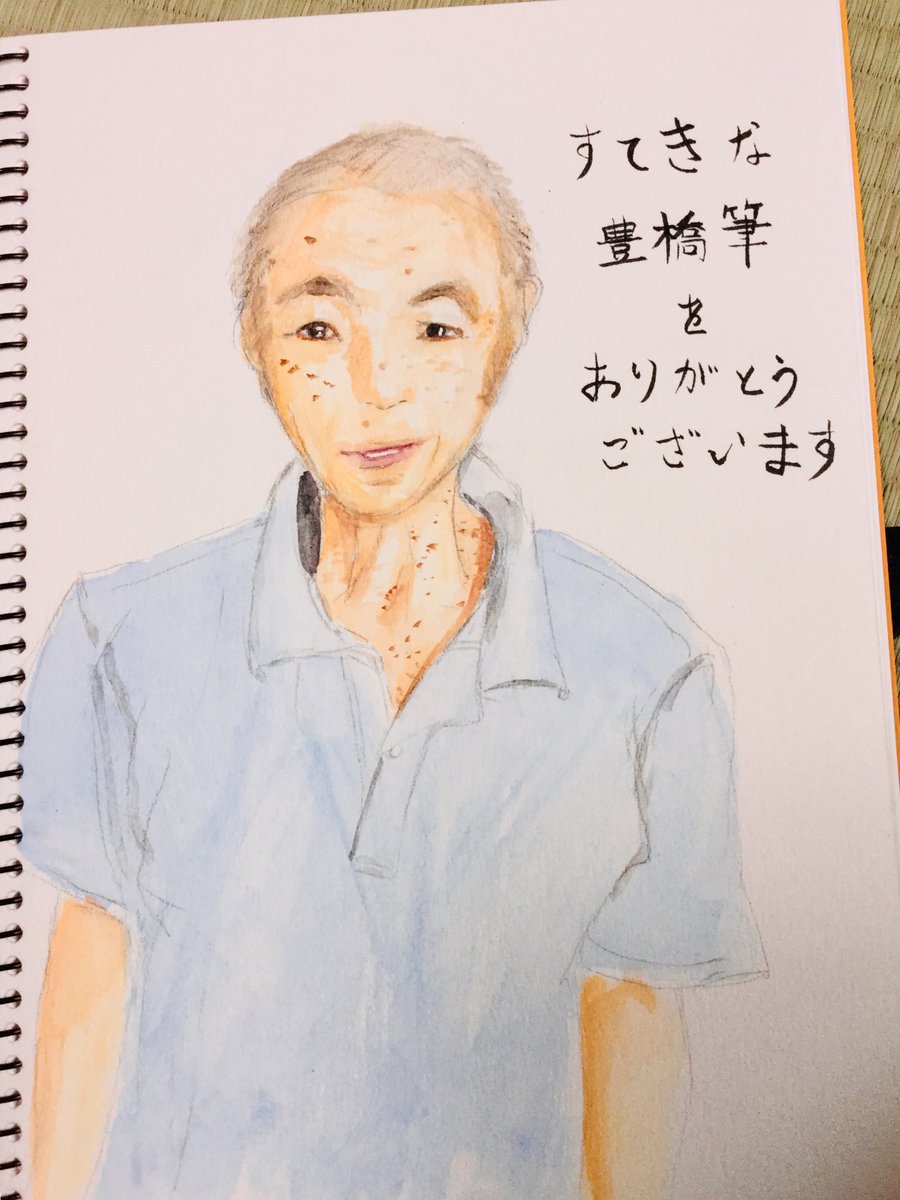 すてきな
豊橋筆
を
ありがとう
ございます